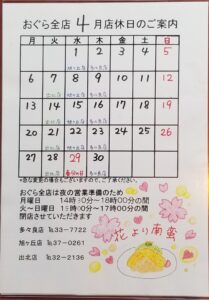 おぐら全店 4月店休日のご案内
月 火 水 木 金 土 日
1 2 3 4 5
6 7 8 9 10 11 12
13 14 15 16 17 18 19
20 21 22 23 24 25 26
27 28 29 30
*急な変更の場合もございますので、ご了承ください。
おぐら全店は夜の営業準備のため
月曜日 14時00分~18時00分の間
火~日曜日 16時00分~17時00分の間
閉店させていただきます
多々良店 ℡33-7722
旭ヶ丘店 ℡37-0261
出北店 ℡32-2136
花より南蛮